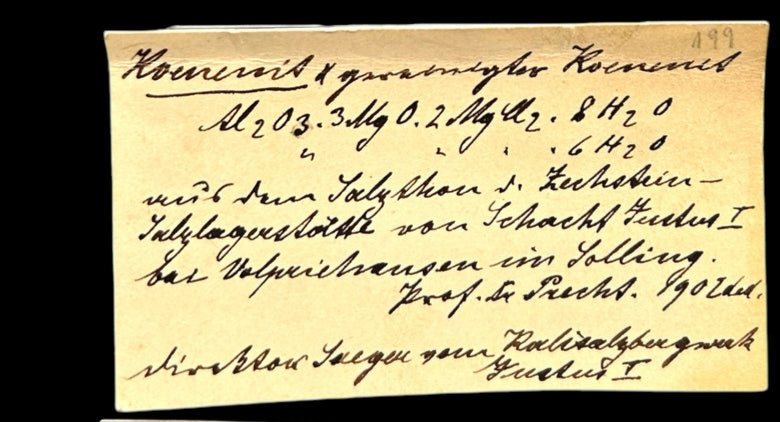 199
Koenenit & gereinigter Koenenit
Al2O3. 3MgO. 2MgCl2. 8H2O
" " " . 6H2O
aus dem Salzthon d. Zechstein-
Salzlagerstätte von Schacht Justus I
bei Volpriehausen im Solling.
Prof. Dr Precht. 1902 ded.
Direktor Saeger vom Kalisalzbergwerk
Justus I